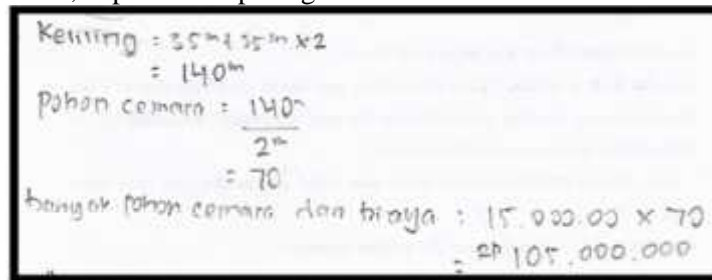 Keliling = 35 m + 35 m x 2
= 140 m
Pohon cemara = 140 m
2 m
= 70
banyak pohon cemara dan biaya : 15.000.00 x 70
= Rp 105.000.000